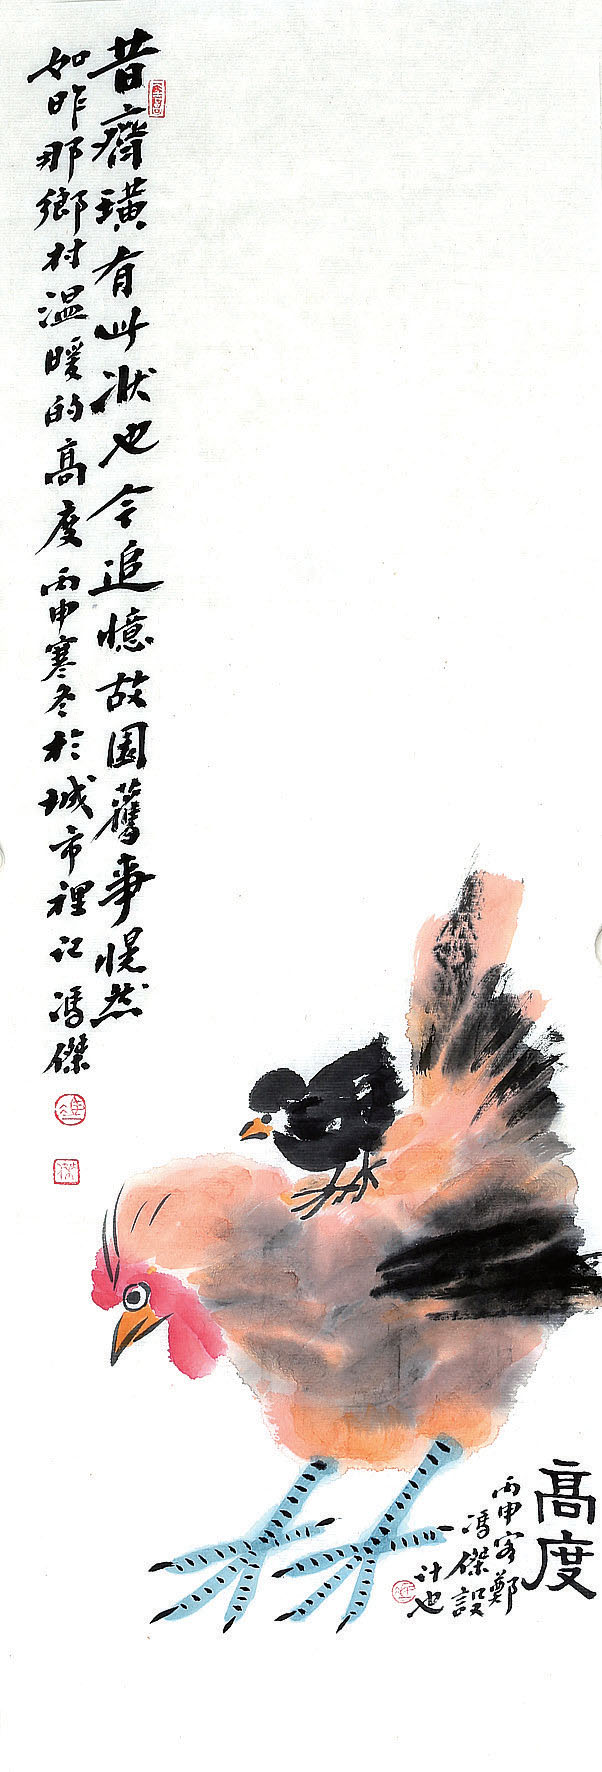 昔齊璜有此状也今追憶故園舊事恍然
如昨那鄉村温暖的高度丙申寒冬於城市裡記馮傑
高度
丙申客鄭
馮傑設
计也